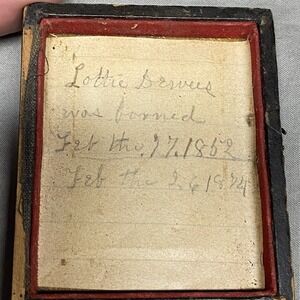 Lottie Dewees
was borned
Feb the 17.1852
Feb the 26 1874